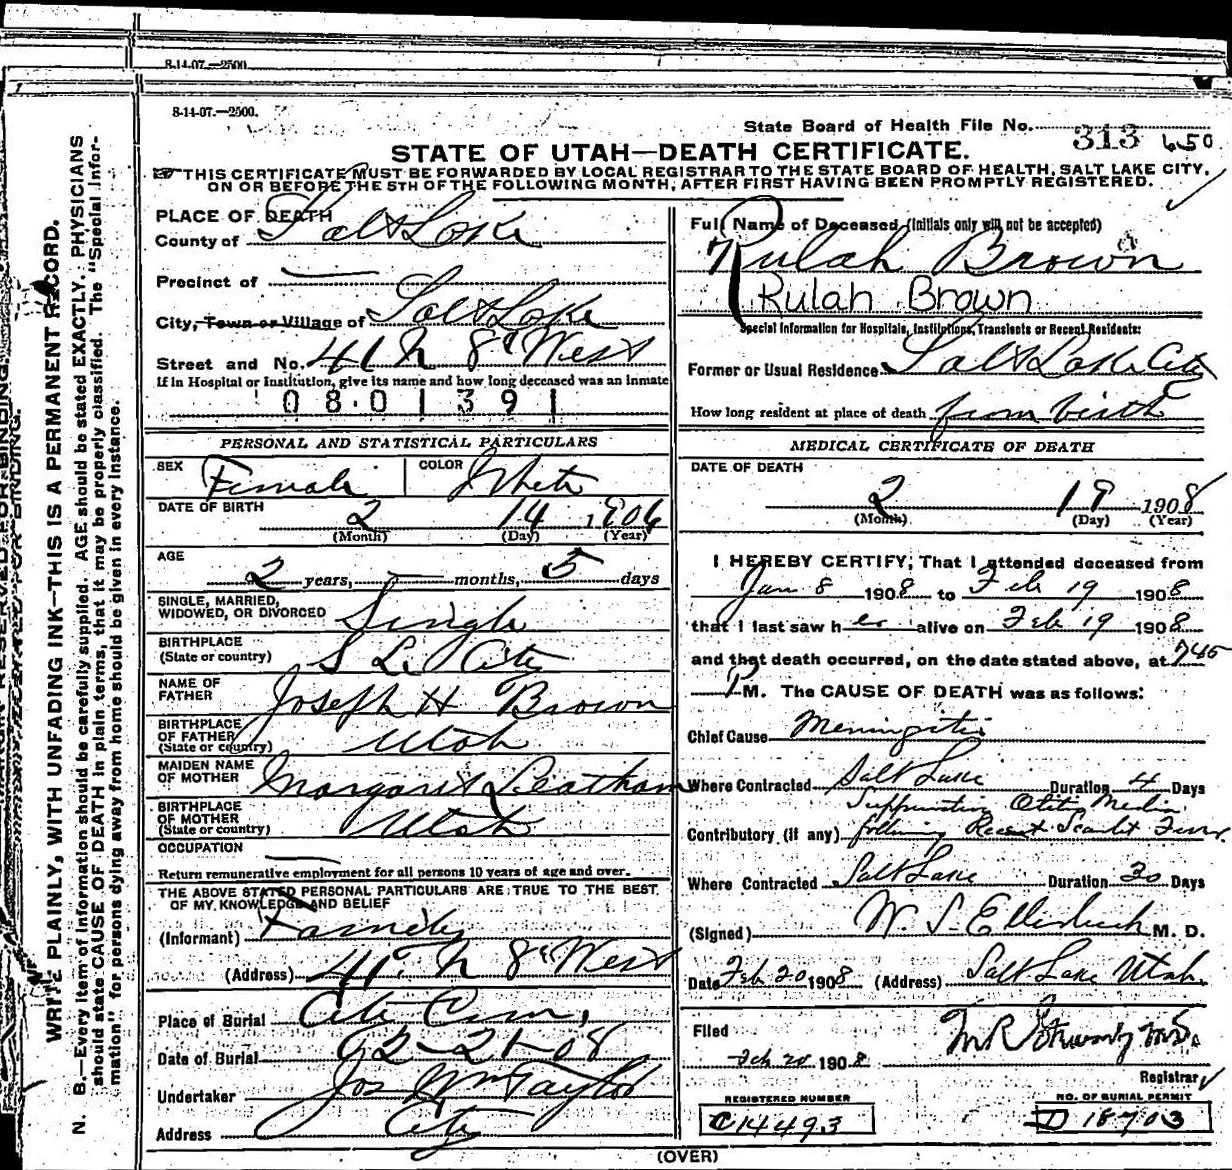 8-14-07.—2500.
8-14-07.—2500.
State Board of Health File No. 313 650
STATE OF UTAH—DEATH CERTIFICATE.
THIS CERTIFICATE MUST BE FORWARDED BY LOCAL REGISTRAR TO THE STATE BOARD OF HEALTH, SALT LAKE CITY,
ON OR BEFORE THE 5TH OF THE FOLLOWING MONTH, AFTER FIRST HAVING BEEN PROMPTLY REGISTERED.
PLACE OF DEATH
County of Salt Lake
Precinct of —
City, Town or Village of Salt Lake
Street and No. 41 N 8th West
If in Hospital or Institution, give its name and how long deceased was an inmate
0801391
PERSONAL AND STATISTICAL PARTICULARS
SEX Female COLOR White
DATE OF BIRTH 2 14 1906
(Month) (Day) (Year)
AGE
2 years, — months, 5 days
SINGLE, MARRIED,
WIDOWED, OR DIVORCED Single
BIRTHPLACE
(State or country) S L City
NAME OF
FATHER Joseph H Brown
BIRTHPLACE
OF FATHER
(State or country) Utah
MAIDEN NAME
OF MOTHER Margaret Leatham
BIRTHPLACE
OF MOTHER
(State or country) Utah
OCCUPATION —
Return remunerative employment for all persons 10 years of age and over.
THE ABOVE STATED PERSONAL PARTICULARS ARE TRUE TO THE BEST
OF MY KNOWLEDGE AND BELIEF
(Informant) Family
(Address) 41 N 8th West
Place of Burial City Cem,
Date of Burial 2-21-08
Undertaker Jos Wm Taylor
Address City
Full Name of Deceased (Initials only will not be accepted)
Rulah Brown
Rulah Brown
Special Information for Hospitals, Institutions, Transients or Recent Residents:
Former or Usual Residence Salt Lake City
How long resident at place of death from birth
MEDICAL CERTIFICATE OF DEATH
DATE OF DEATH
2 19 1908
(Month) (Day) (Year)
I HEREBY CERTIFY, That I attended deceased from
Jan 8 1908 to Feb 19 1908
that I last saw her alive on Feb 19 1908
and that death occurred, on the date stated above, at 745
P M. The CAUSE OF DEATH was as follows:
Chief Cause Meningitis
Where Contracted Salt Lake Duration 4 Days
Suppurating Otitis Media
Contributory (if any) following Recent Scarlet Fever
Where Contracted Salt Lake Duration 30 Days
(Signed) W. S. Ellerbeck M. D.
Date Feb 20 1908 (Address) Salt Lake Utah.
Filed
Feb 20 1908
Registrar
REGISTERED NUMBER
C14493
NO. OF BURIAL PERMIT
D 18703
(OVER)
WRITE PLAINLY, WITH UNFADING INK—THIS IS A PERMANENT RECORD.
N. B.—Every item of information should be carefully supplied. AGE should be stated EXACTLY. PHYSICIANS
should state CAUSE OF DEATH in plain terms, that it may be properly classified. The "Special Infor-
mation" for persons dying away from home should be given in every instance.
RESERVED FOR BINDING.